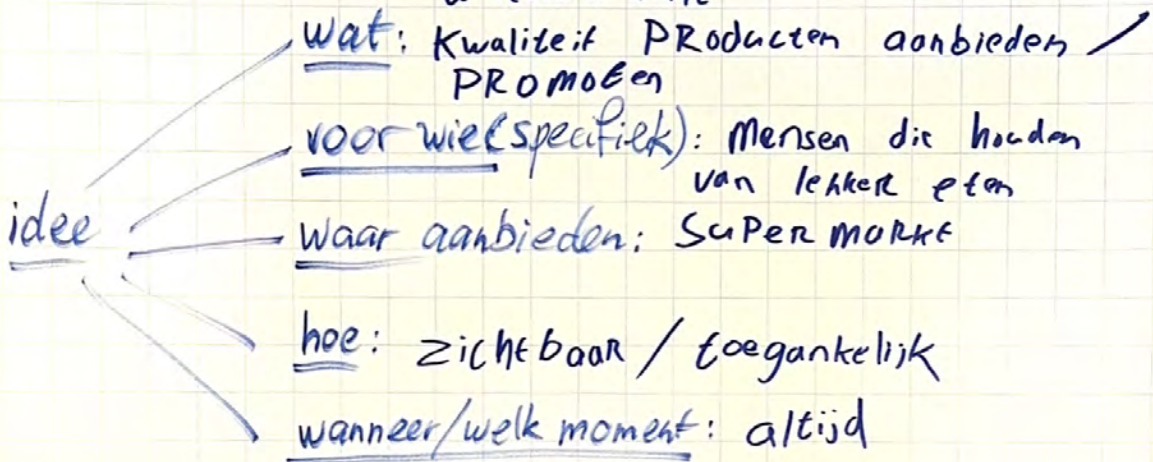 wat: Kwaliteit PRoducten aanbieden /
PRomoten
voor wie (specifiek): mensen die houden
van lekker eten
idee
waar aanbieden: SuPeRmaRkt
hoe: zichtbaaR / toegankelijk
wanneer/welk moment: altijd